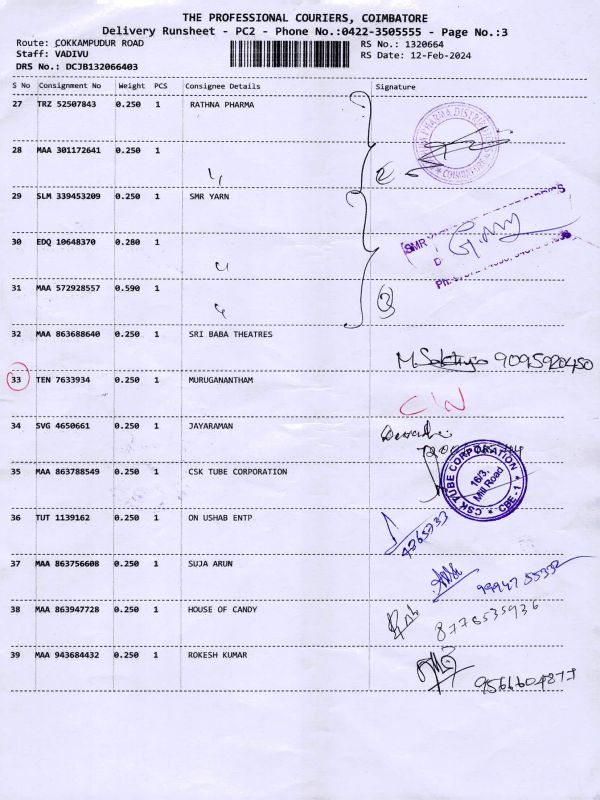 THE PROFESSIONAL COURIERS, COIMBATORE
Delivery Runsheet - PC2 - Phone No.:0422-3505555 - Page No.:3
Route: COKKAMPUDUR ROAD RS No.: 1320664
Staff: VADIVU RS Date: 12-Feb-2024
DRS No.: DCJB132066403
S No Consignment No Weight PCS Consignee Details Signature
27 TRZ 52507843 0.250 1 RATHNA PHARMA
28 MAA 301172641 0.250 1
29 SLM 339453209 0.250 1 SMR YARN
SMR
30 EDQ 10648370 0.280 1
31 MAA 572928557 0.590 1
32 MAA 863688640 0.250 1 SRI BABA THEATRES
9095920450
33 TEN 7633934 0.250 1 MURUGANANTHAM
C/N
34 SVG 4650661 0.250 1 JAYARAMAN
35 MAA 863788549 0.250 1 CSK TUBE CORPORATION
CSK TUBE CORPORATION
16/3,
Mill Road
CBE-1
36 TUT 1139162 0.250 1 ON USHAB ENTP
37 MAA 863756608 0.250 1 SUJA ARUN
38 MAA 863947728 0.250 1 HOUSE OF CANDY
8778535936
39 MAA 943684432 0.250 1 ROKESH KUMAR
9566604877